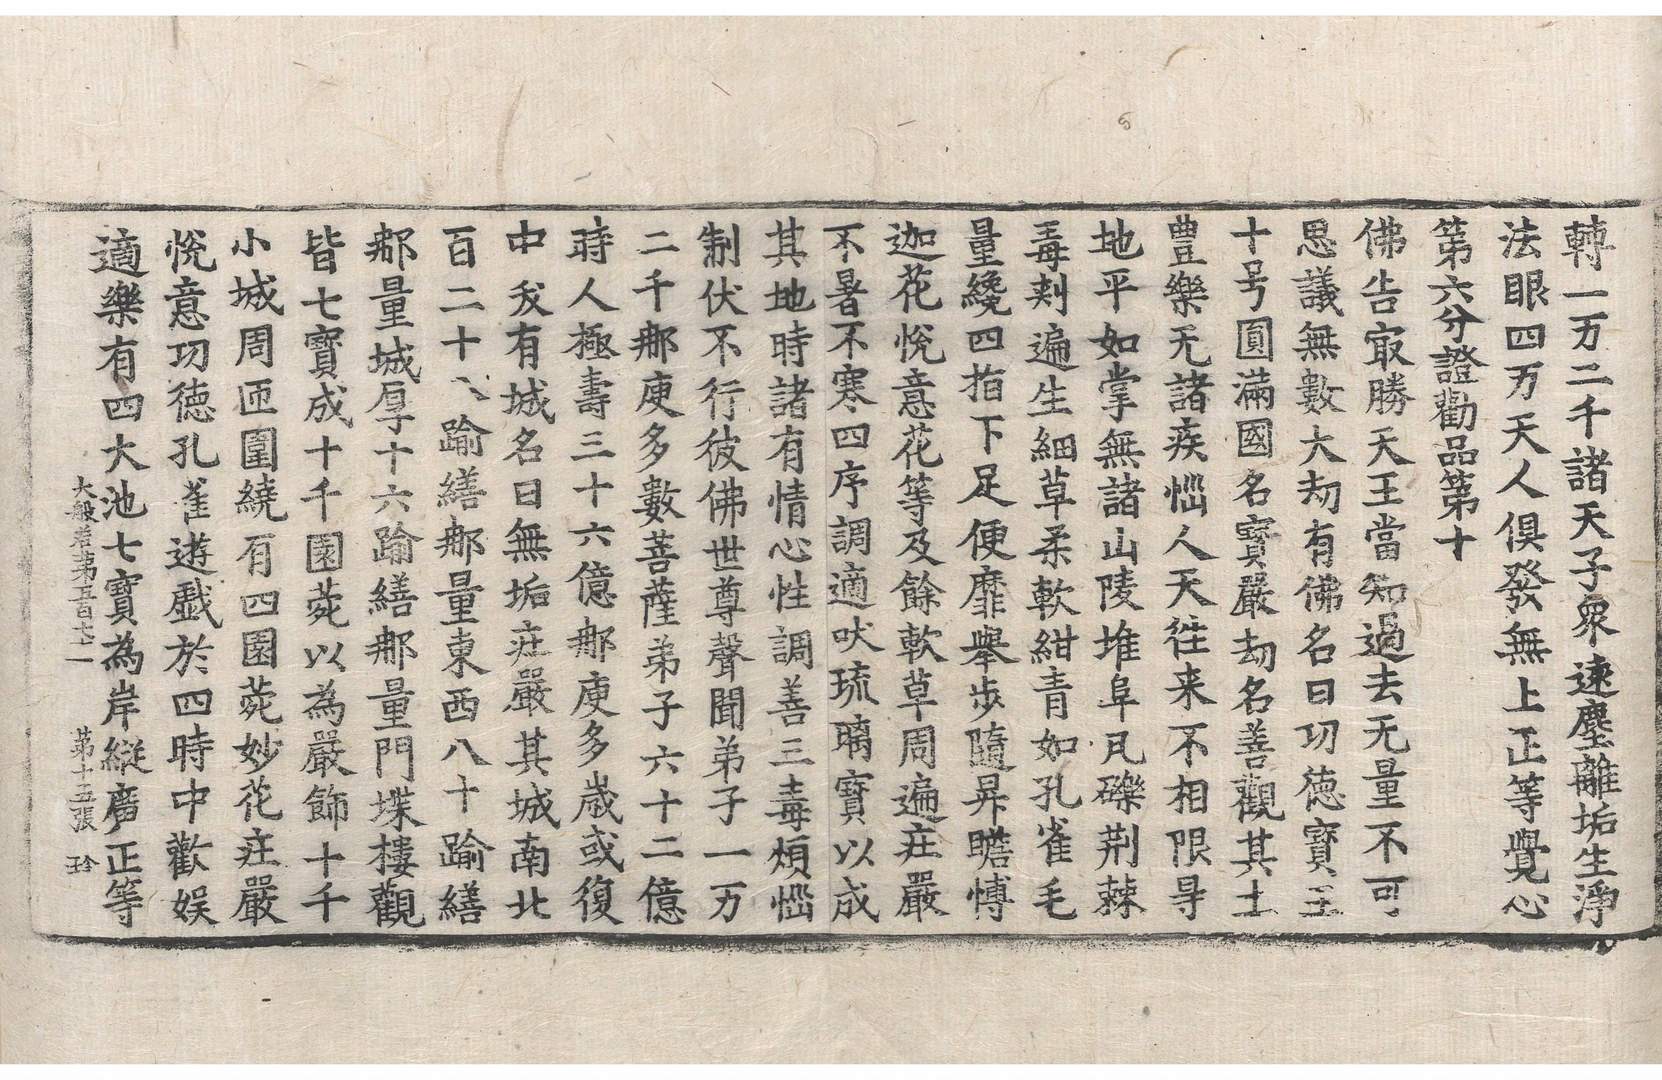 轉一万二千諸天子衆遠塵離垢生淨
法眼四万天人俱發無上正等覺心
第六分證勸品第十
佛告㝡勝天王當知過去无量不可
思議無數大劫有佛名曰功德寶王
十号圓滿國名寶嚴劫名善觀其土
豊樂无諸疾惱人天徃来不相限㝵
地平如掌無諸山陵堆阜凡礫荆棘
毒刾遍生細草柔軟紺青如孔雀毛
量纔四指下足便靡舉步隨昇瞻愽
迦花悅意花等及餘軟草周遍庄嚴
不暑不寒四序調適吠琉璃寶以成
其地時諸有情心性調善三毒煩惱
制伏不行彼佛世尊聲聞弟子一万
二千郍庾多數菩薩弟子六十二億
時人極壽三十六億郍庾多歲或復
中夭有城名曰無垢庄嚴其城南北
百二十八踰繕郍量東西八十踰繕
郍量城厚十六踰繕郍量門堞樓觀
皆七寶成十千園菀以為嚴飾十千
小城周匝圍繞有四園菀妙花庄嚴
悅意功德孔雀遊戲於四時中歡娱
適樂有四大池七寶為岸縱廣正等
大般若第五百六十一 第十五張 珎